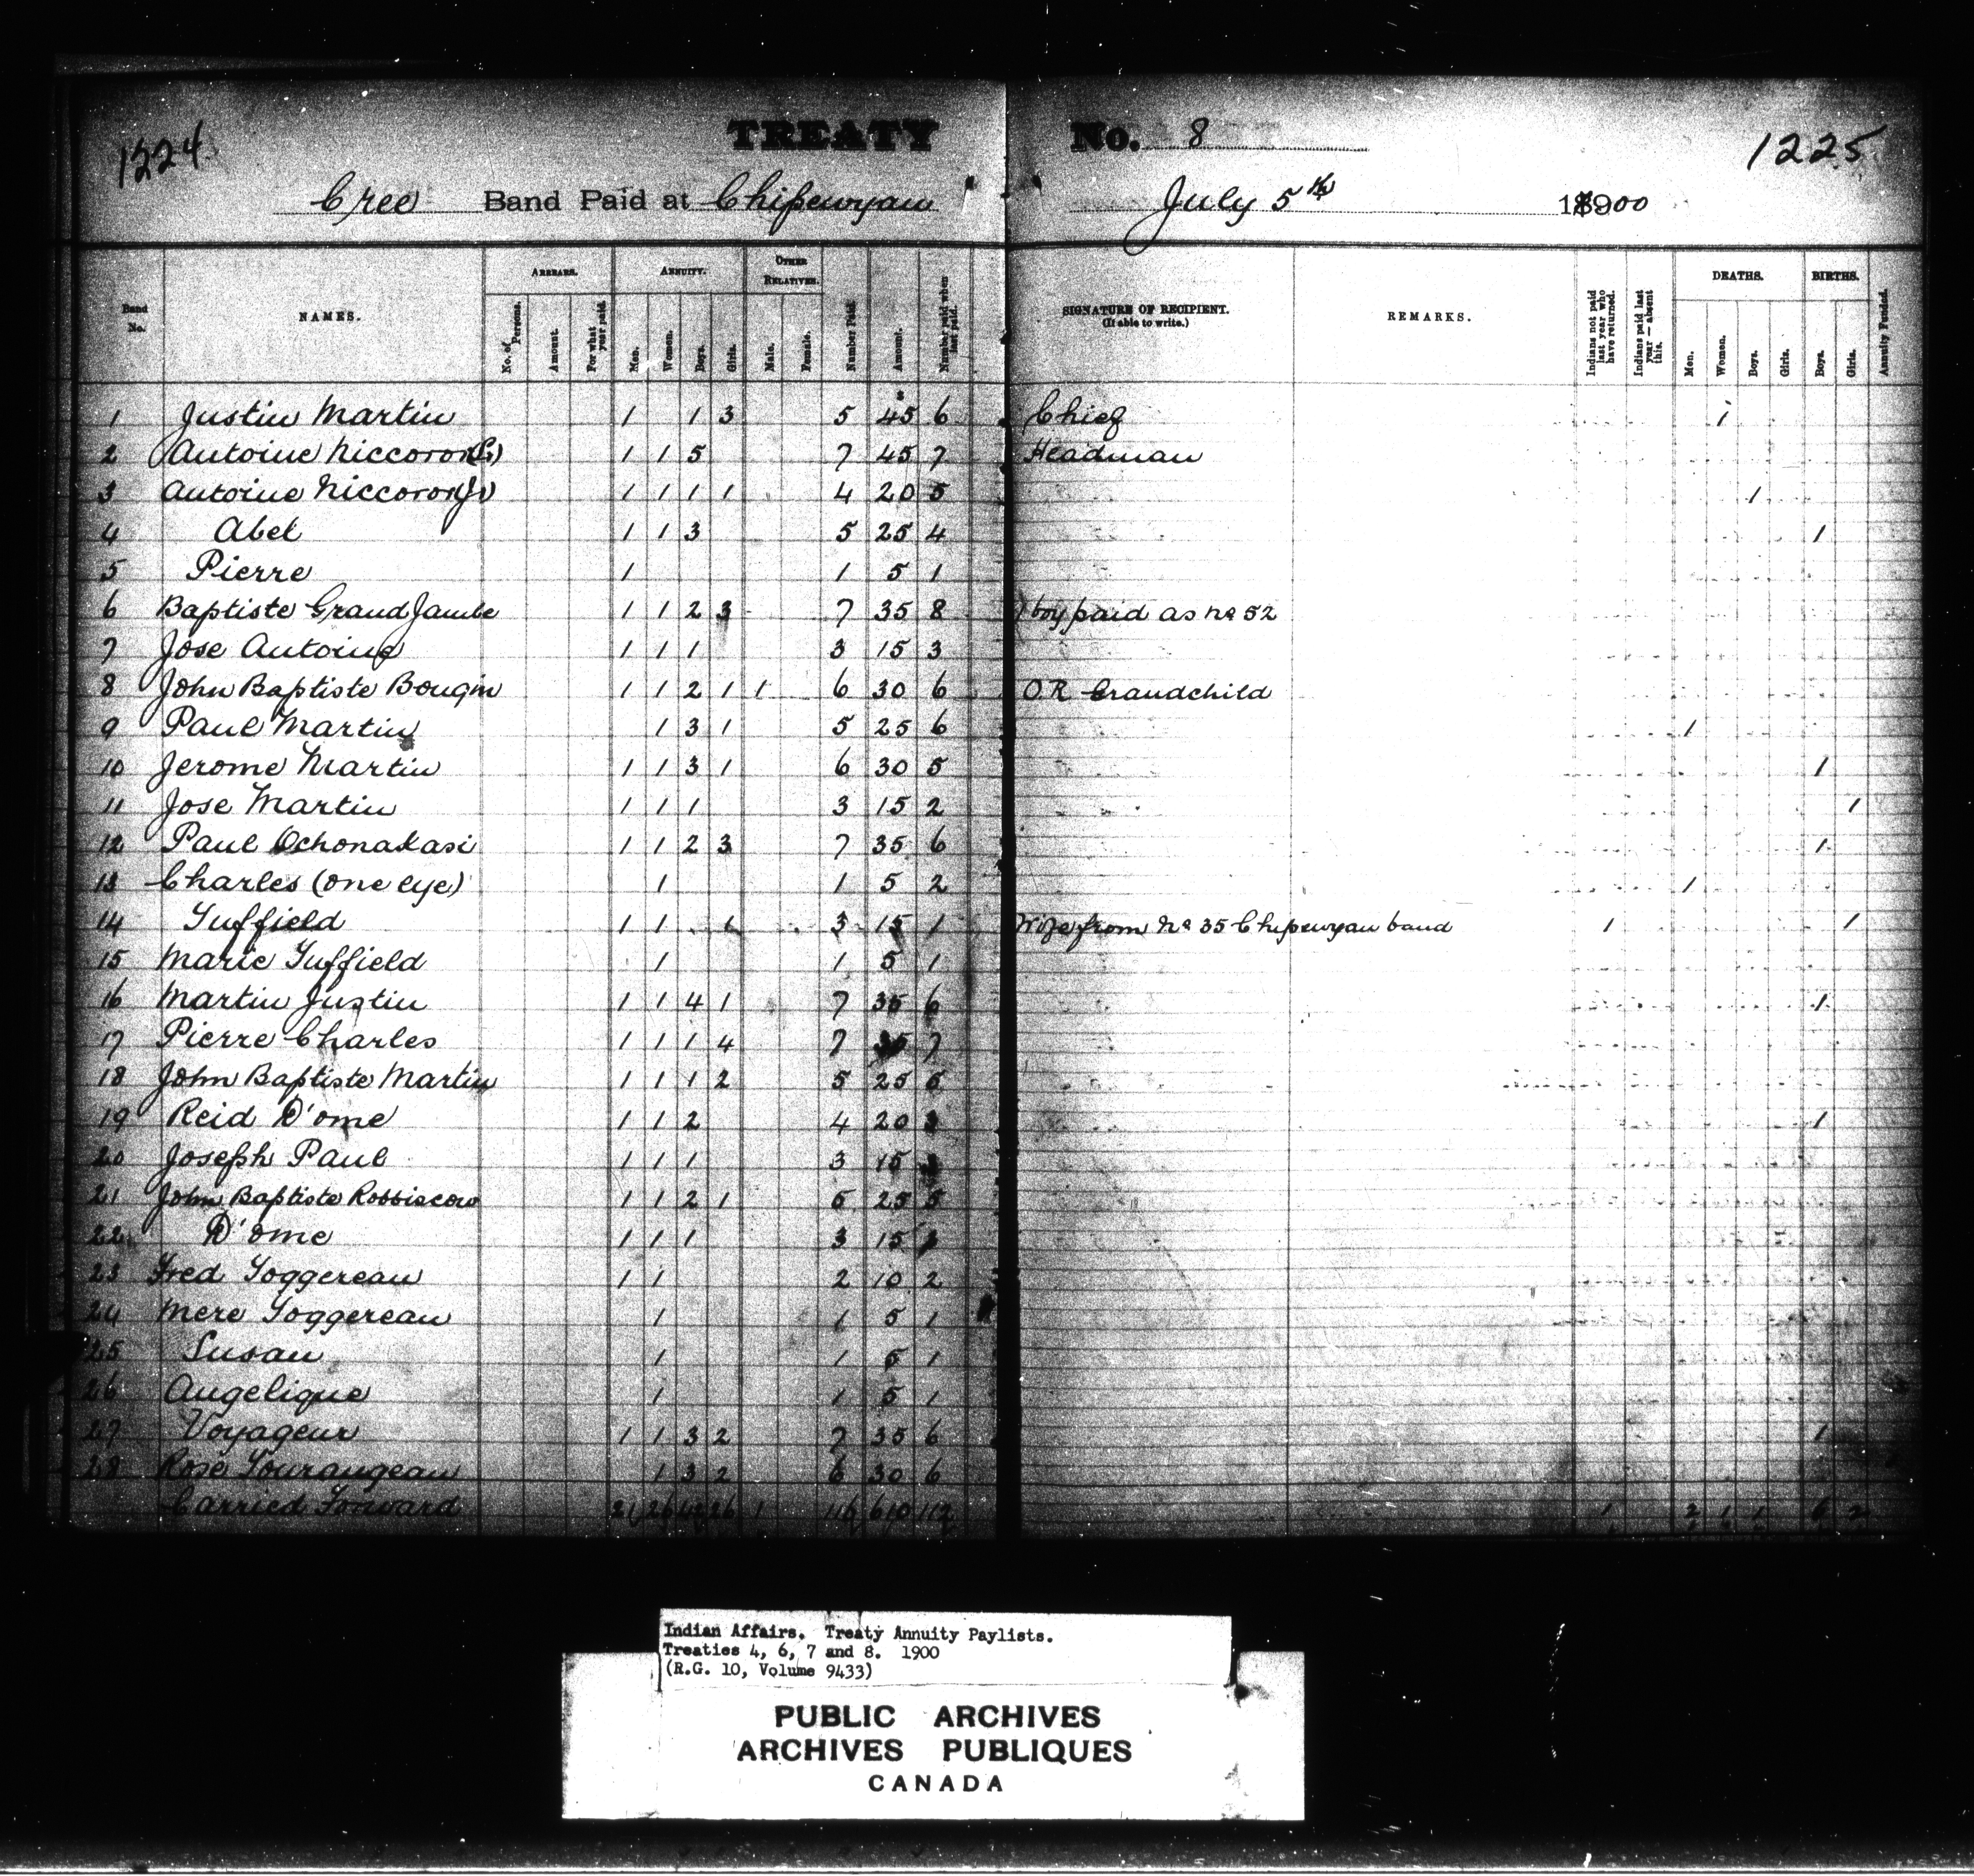 1224 TREATY No. 8 1225
Cree Band Paid at Chipewyan July 5th 1900
Band No. NAMES. ARREARS. No. of Persons. Amount. For what year paid. ANNUITY. Men. Women. Boys. Girls. OTHER RELATIVES. Male. Female. Number Paid. Amount. Number paid when last paid. SIGNATURE OF RECIPIENT. (If able to write.) REMARKS. Indians not paid last year who have returned. Indians paid last year — absent this. DEATHS. Men. Women. Boys. Girls. BIRTHS. Boys. Girls. Annuity Funded.
1 Justin Martin 1 1 3 5 45 6 Chief 1
2 Antoine Niccoron (Sr) 1 1 5 7 45 7 Headman
3 Antoine Niccoron (Jr) 1 1 1 1 4 20 5 1
4 Abel 1 1 3 5 25 4 1
5 Pierre 1 1 5 1
6 Baptiste Grand Jambe 1 1 2 3 7 35 8 1 boy paid as No 52
7 Jose Antoine 1 1 1 3 15 3
8 John Baptiste Bougin 1 1 2 1 1 6 30 6 O.R Grandchild
9 Paul Martin 1 3 1 5 25 6 1
10 Jerome Martin 1 1 3 1 6 30 5 1
11 Jose Martin 1 1 1 3 15 2 1
12 Paul Ochonakasi 1 1 2 3 7 35 6 1
13 Charles (one eye) 1 1 5 2 1
14 Tuffield 1 1 1 3 15 1 Wife from No 35 Chipewyan band 1 1
15 Marie Tuffield 1 1 5 1
16 Martin Justin 1 1 4 1 7 35 6 1
17 Pierre Charles 1 1 1 4 7 35 7
18 John Baptiste Martin 1 1 1 2 5 25 5
19 Reid D'ome 1 1 2 4 20 3 1
20 Joseph Paul 1 1 1 3 15 3
21 John Baptiste Robbiscow 1 1 2 1 5 25 5
22 D'ome 1 1 1 3 15 3
23 Fred Toggereau 1 1 2 10 2
24 Mere Toggereau 1 1 5 1
25 Susan 1 1 5 1
26 Angelique 1 1 5 1
27 Voyageur 1 1 3 2 7 35 6 1
28 Rose Tourangeau 1 3 2 6 30 6
Carried Forward 21 26 42 26 1 116 610 112 1 2 1 1 6 2
Indian Affairs. Treaty Annuity Paylists.
Treaties 4, 6, 7 and 8. 1900
(R.G. 10, Volume 9433)
PUBLIC ARCHIVES
ARCHIVES PUBLIQUES
CANADA